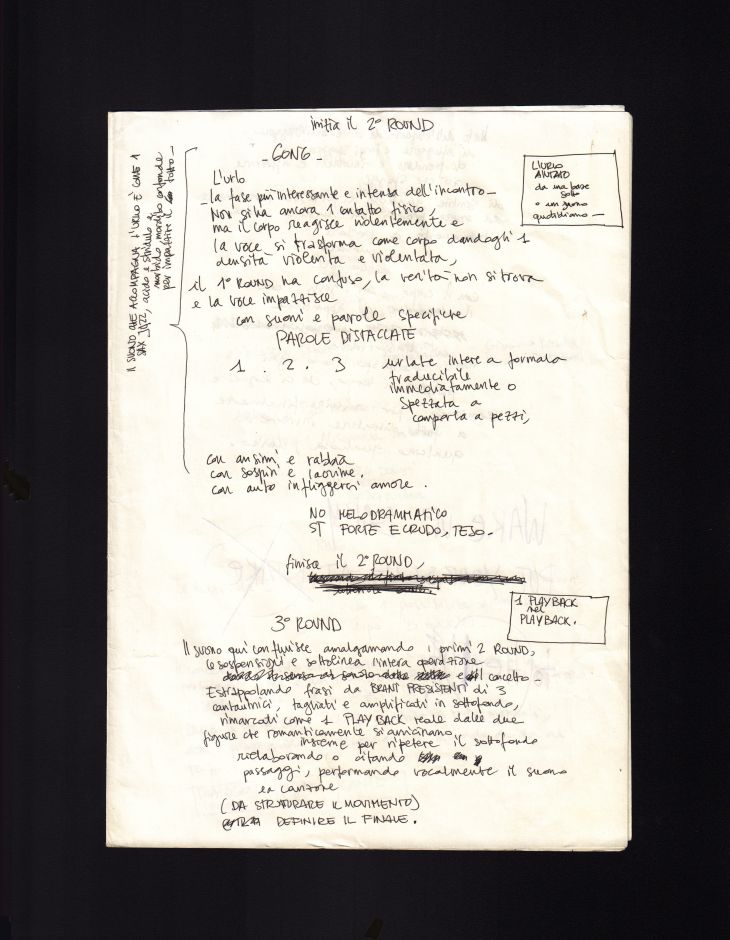 inizia il 2° ROUND
- GONG -
L'URLO
AIUTATO
da una base
sotto
o un suono
quotidiano —
IL SUONO CHE ACCOMPAGNA L'URLO È COME 1
SAX JAZZ, acido e stridulo &
morbido morbido confonde
per impattire il tutto —
L'urlo
la fase più interessante e intensa dell'incontro —
Non si ha ancora 1 contatto fisico,
ma il corpo reagisce violentemente e
la voce si trasforma come corpo dandogli 1
densità violenta e violentata,
il 1° ROUND ha confuso, la verità non si trova
e la voce impazzisce
con suoni e parole specifiche
PAROLE DISTACCATE
1 . 2 . 3 urlate intere a formala
traducibile
immediatamente o
Spezzata a
comporla a pezzi,
con ansimi e rabbia
con sospiri e lacrime.
con auto infliggersi amore.
NO MELODRAMMATICO
SI FORTE E CRUDO, TESO.
finisce il 2° ROUND,
1 PLAYBACK
nel
PLAYBACK.
3° ROUND
Il suono qui confluisce amalgamando i primi 2 ROUND,
le sospensioni e sottolinea l'intera operazione
e il concetto —
Estrappolando frasi da BRANI PRESISTENTI di 3
cantautrici, tagliati e amplificati in sottofondo,
rimarcati come 1 PLAY BACK reale dalle due
figure che romanticamente si avvicinano
insieme per ripetere il sottofondo
rielaborando o citando
passaggi, performando vocalmente il suono
la canzone
(DA STRUTURARE IL MOVIMENTO)
DEFINIRE IL FINALE.